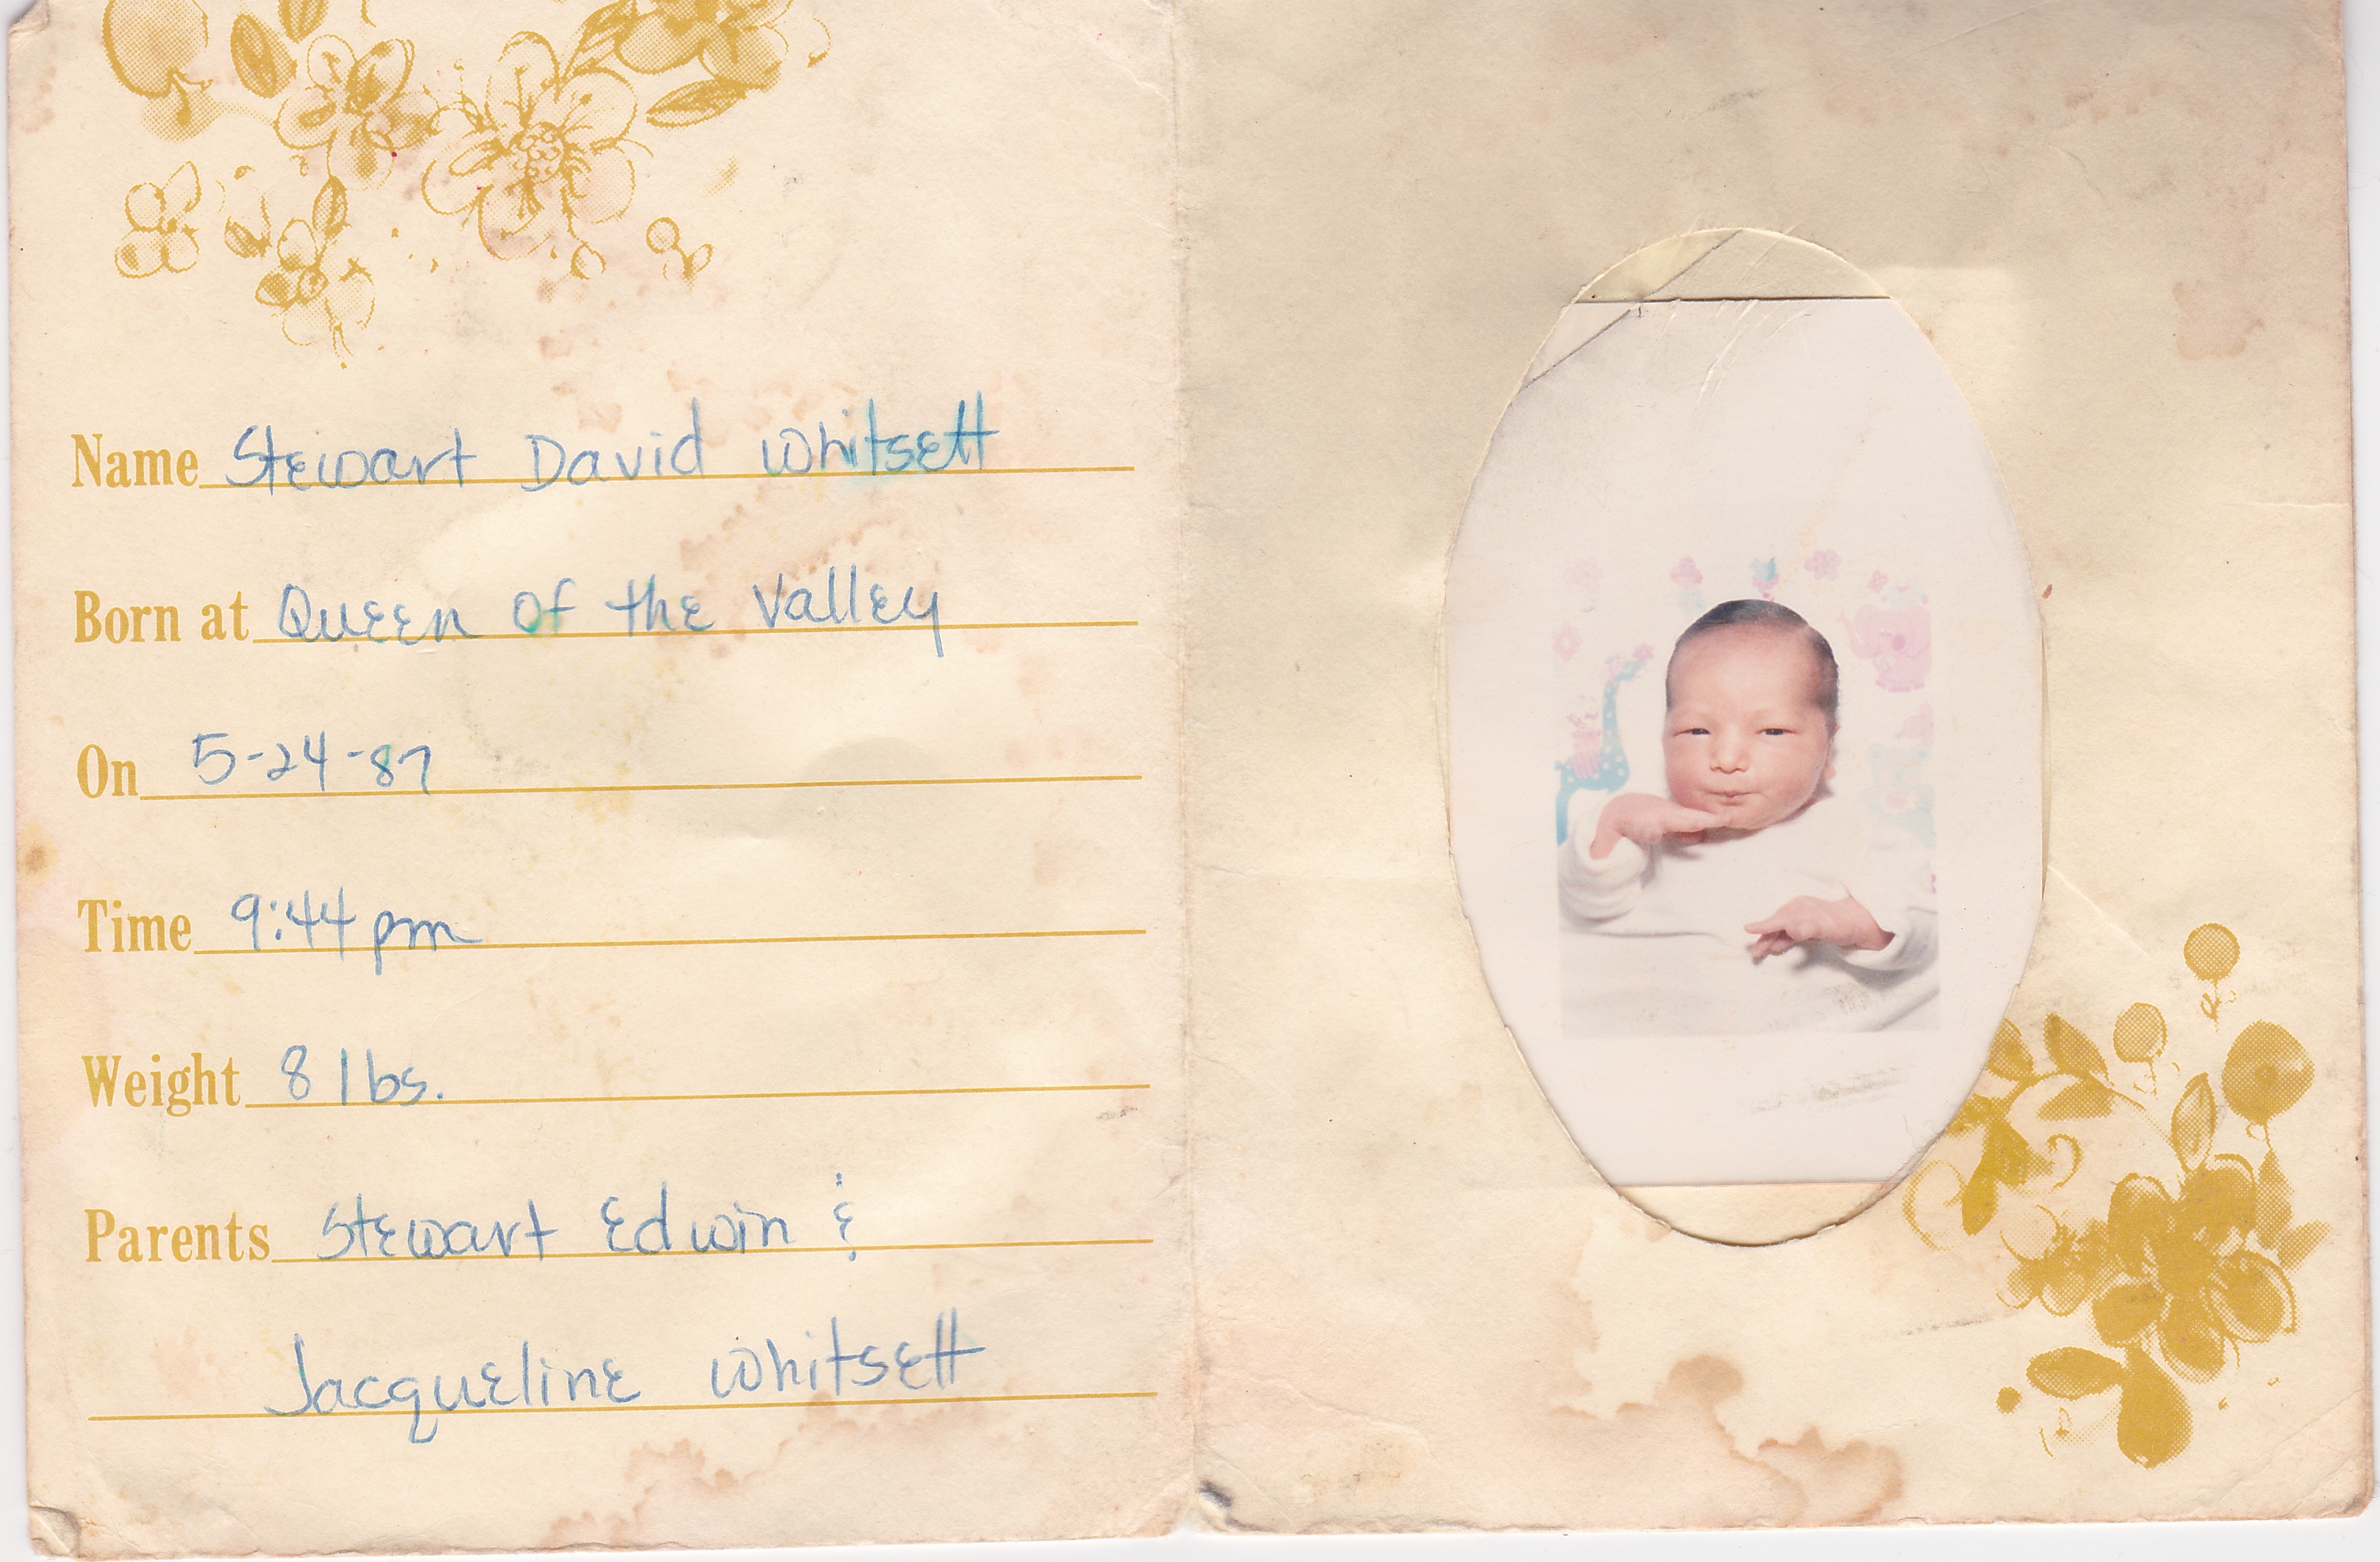 Name Stewart David Whitsett
Born at Queen of the Valley
On 5-24-87
Time 9:44 pm
Weight 8 lbs.
Parents Stewart Edwin &
Jacqueline Whitsett